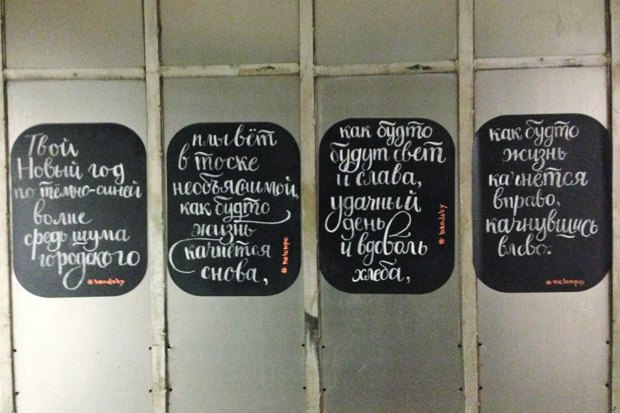 Твой
Новый год
по тёмно-синей
волне
средь шума
городского
#brodsky
плывёт
в тоске
необъяснимой,
как будто
жизнь
качнётся
снова,
как будто
будут свет
и слава,
удачный
день
и вдоволь
хлеба,
#brodsky
как будто
жизнь
качнётся
вправо,
качнувшись
влево.